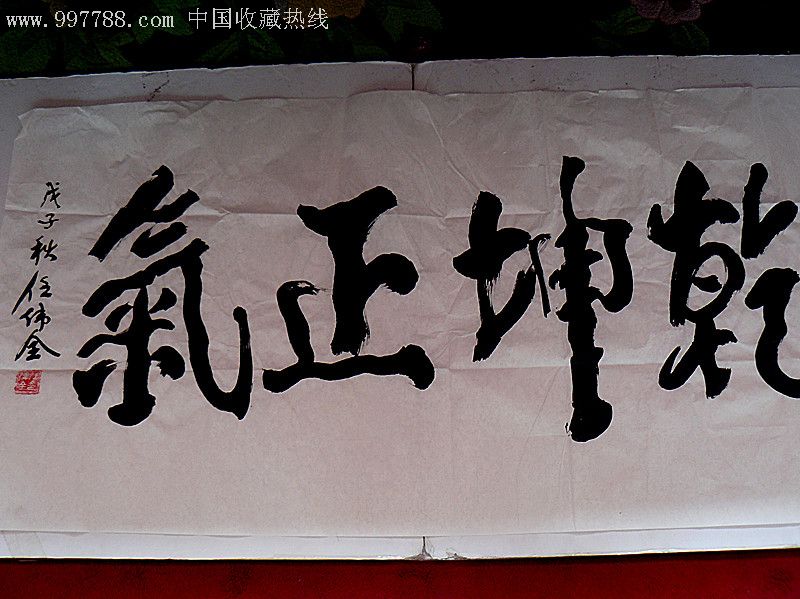 www.997788.com 中国收藏热线
乾坤正氣
戊子秋任伟金